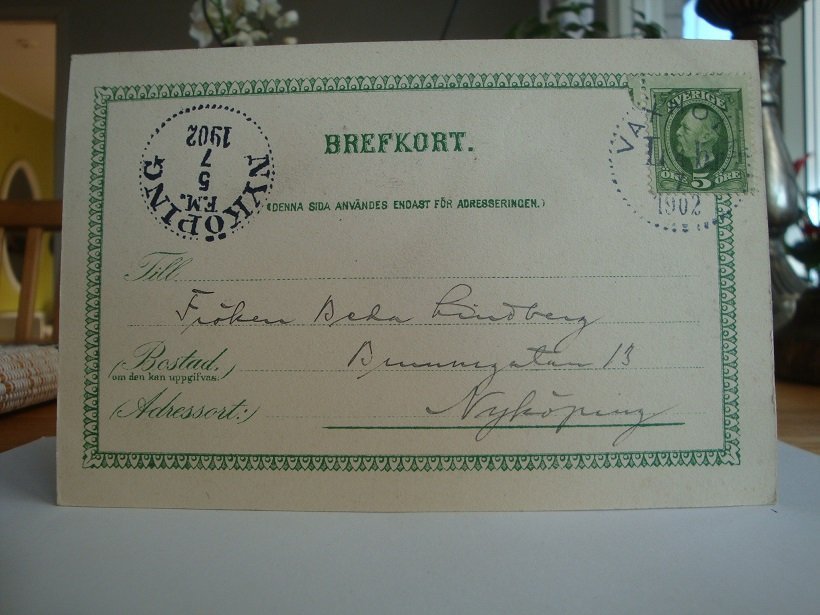 BREFKORT.
(DENNA SIDA ANVÄNDES ENDAST FÖR ADRESSERINGEN.)
NYKÖPING
F.M.
5
7
1902
SVERIGE
5
ÖRE
1902
Till
Fröken Beda Lindberg
(Bostad,)
om den kan uppgifvas:
Brunnsgatan 13
(Adressort:)
Nyköping